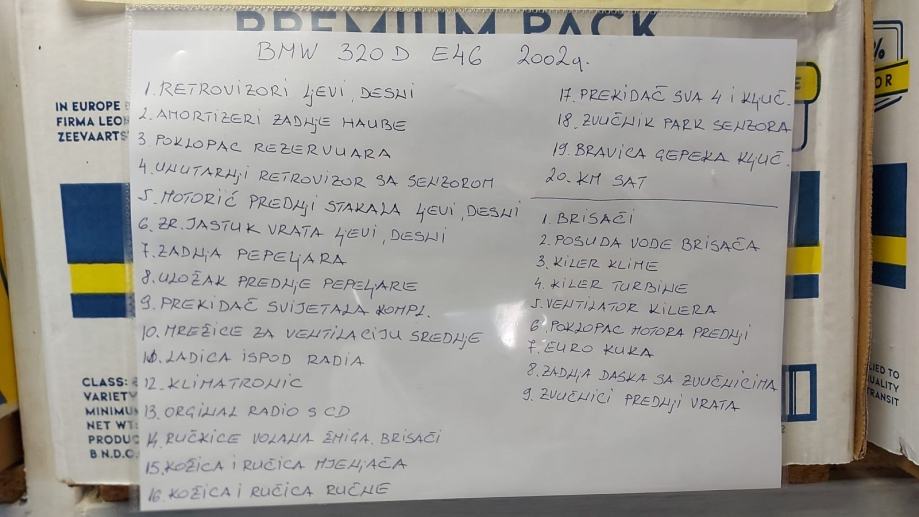 PREMIUM PACK
BMW 320D E46 2002g.
1. RETROVIZORI LJEVI, DESNI
2. AMORTIZERI ZADNJE HAUBE
3 POKLOPAC REZERVUARA
4. UNUTARNJI RETROVIZOR SA SENZOROM
5. MOTORIĆ PREDNJI STAKALA LJEVI, DESNI
6. ZR. JASTUK VRATA LJEVI, DESNI
7. ZADNJA PEPELJARA
8. ULOŽAK PREDNJE PEPELJARE
9. PREKIDAČ SVIJETALA KOMPL.
10. MREŽICE ZA VENTILACIJU SREDNJE
11. LADICA ISPOD RADIA
12. KLIMATRONIC
13. ORGINAL RADIO S CD
14. RUČKICE VOLANA ŽMIGA. BRISAČI
15. KOŽICA I RUČICA MJENJAČA
16. KOŽICA I RUČICA RUČNE
17. PREKIDAČ SVA 4 I KLJUČ.
18. ZVUČNIK PARK SENZORA
19. BRAVICA GEPEKA KLJUČ.
20. KM SAT
1. BRISAČI
2. POSUDA VODE BRISAČA
3. KILER KLIME
4. KILER TURBINE
5. VENTILATOR KILERA
6. POKLOPAC MOTORA PREDNJI
7. EURO KUKA
8. ZADNJA DASKA SA ZVUČNICIMA
9. ZVUČNICI PREDNJI VRATA
IN EUROPE
FIRMA LEON
ZEEVAARTS
CLASS:
VARIETY
MINIMUM
NET WT:
PRODUC
B.N.D.C.
%
OR
LIED TO
UALITY
TRANSIT